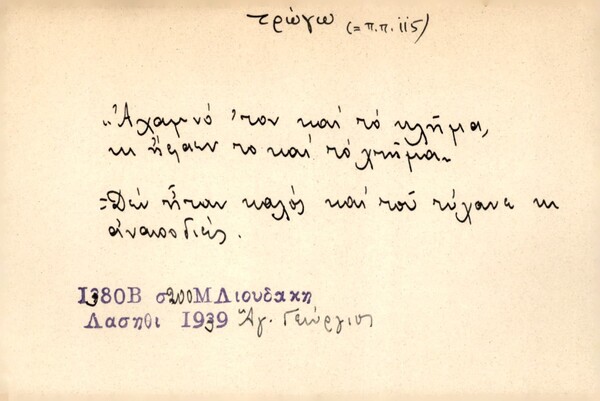 τρώγω (=π.π. 115)
"Ἀχαμνό 'τον καί τό κλῆμα,
κι ἤφαεν το καί τό χτῆμα.
=Δέν ἦταν καλός καί τοῦ τύχανε κι
ἀναποδιές.
1380Β σ200 Μ Λιουδακη
Λασηθι 1939 Ἅγ. Γεώργιος